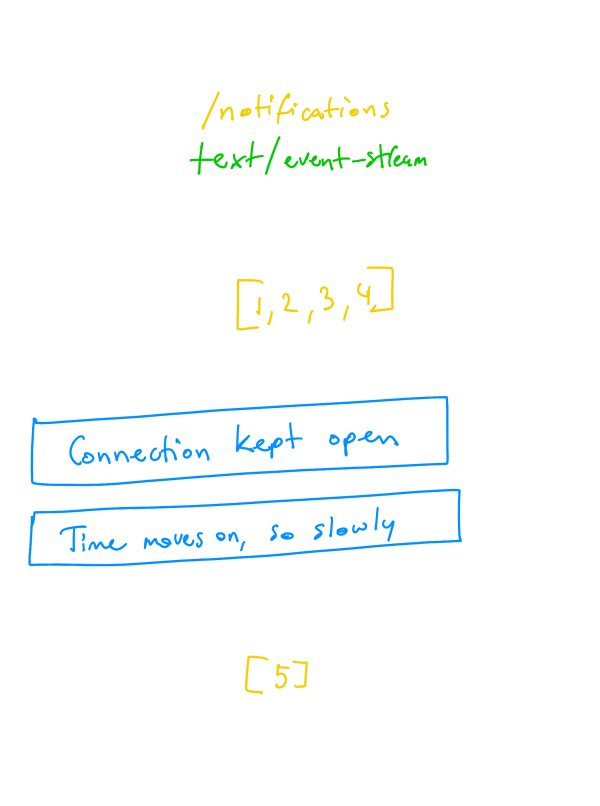 /notifications
text/event-stream
[1,2,3,4]
Connection kept open
Time moves on, so slowly
[5]